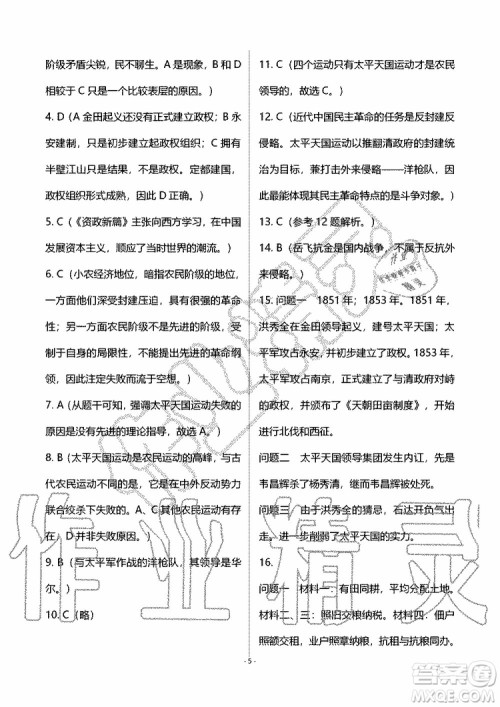 阶级矛盾尖锐，民不聊生。A 是现象，B 和 D
相对于 C 只是一个比较表层的原因。）
4. D（A 金田起义还没有正式建立政权；B 永
安建制，只是初步建立政权组织；C 拥有
半壁江山只是结果，不是政权。定都建国，
政权组织形式成熟，因此选 D。）
5. C（《资政新篇》主张向西方学习，在中国
发展资本主义，顺应了当时世界的潮流。）
6. C（小农经济地位，暗指农民阶级的地位，
一方面，农民阶级深受封建压迫，具有革命
性；另一方面因农民阶级不是先进的阶级，受
自身的局限性，不能提出科学的革命纲
领，因此注定失败而流于空想。）
7. A（从题干可知，强调太平天国运动失败的
原因是没有先进的理论指导，故选 A。）
8. B（太平天国运动是农民运动的高峰，与古
代农民运动不同的是，它是在中外反动势力
联合绞杀下失败的。A、C 两项古代农民运动
存在，D 并非失败原因。）
9. B（与太平军作战的洋枪队，其首领是华
尔。）
10. C（略）
11. C（四个运动只有太平天国运动才是农民
领导的，故选 C。）
12. C（近代中国民主革命的任务是反封建反
侵略。太平天国运动以推翻清政府的封建统
治为目标，兼打击外来侵略——洋枪队，因
此最能体现其民主革命特点的是斗争对象。）
13. C（参考 12 题解析。）
14. B（岳飞抗金是国内战争，不属于反抗外
来侵略。）
15. 问题一 1851 年；1853 年。1851 年，
洪秀全在金田领导起义，建号太平天国；太
平军攻占永安，并初步建立了政权。1853 年，
太平军攻占南京，正式建立了与清政府对峙
的政权，并颁布了《天朝田亩制度》，以后
开始了北伐和西征。
问题二 太平天国领导集团发生内讧，先是
韦昌辉杀了杨秀清，继而韦昌辉被处死。
问题三 由于洪秀全的猜忌，石达开率部出
走。进一步削弱了太平天国的领导和力量。
16.
问题一 材料一：有田同耕，平均分配土地。
材料二、三：照旧交粮纳税。材料四：佃户
照额交租，业户照章纳粮，抗租与抗粮同办。
- 5 -
作业精灵
作业精灵
答案圈
MXQE.COM